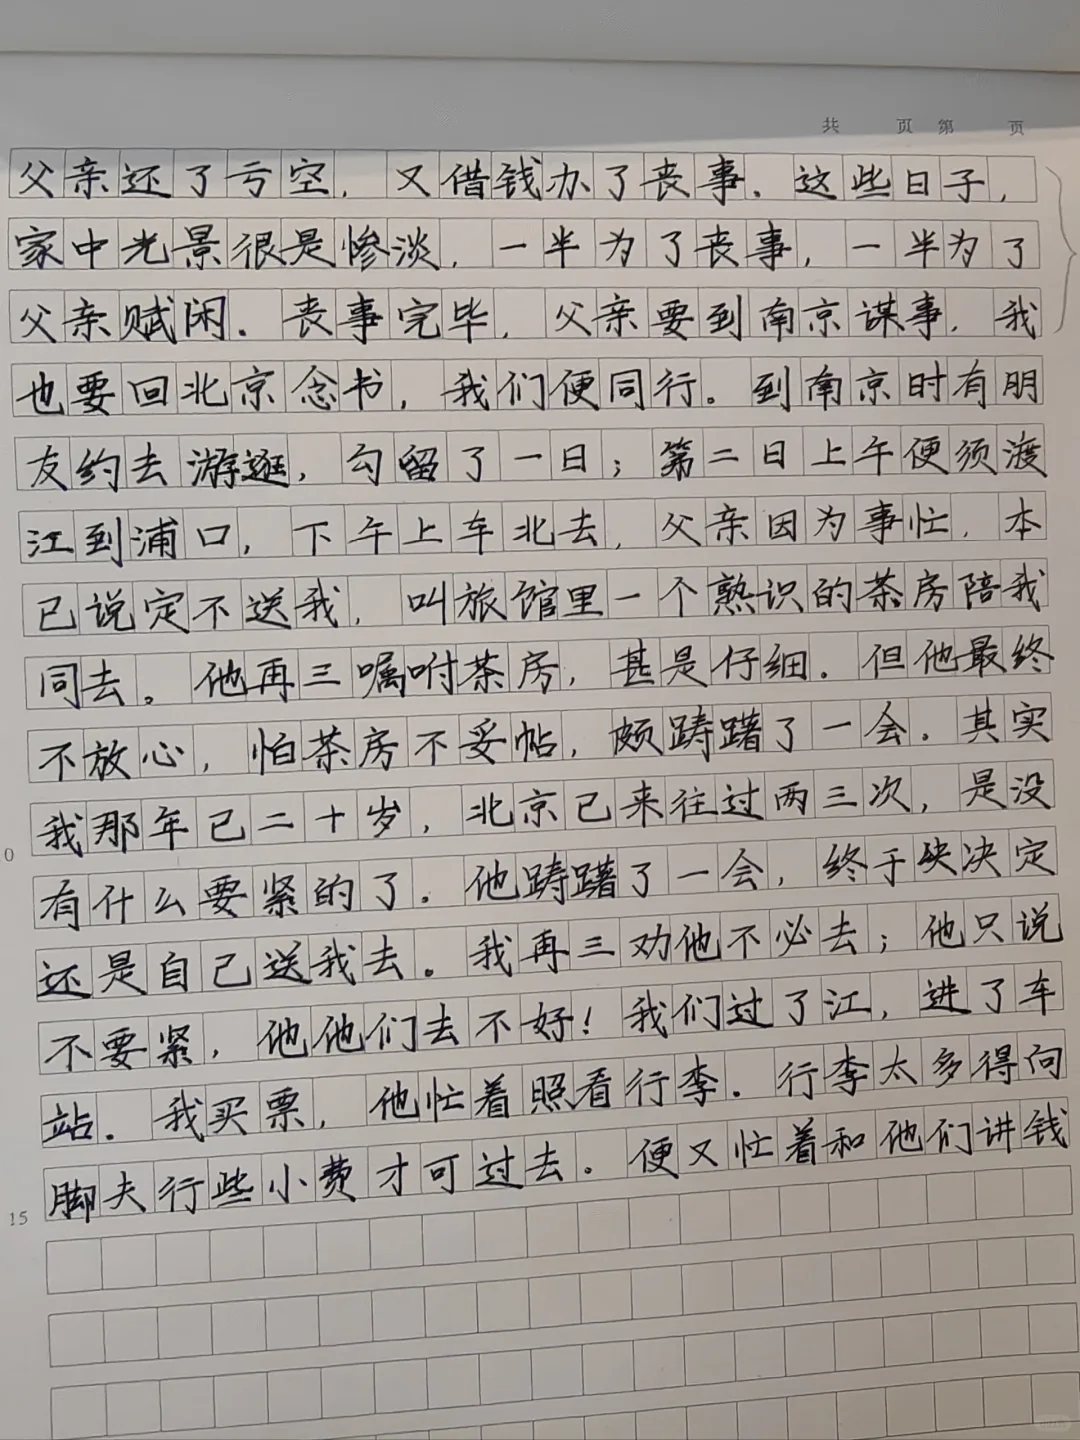 共 页 第 页
父亲还了亏空，又借钱办了丧事．这些日子，
家中光景很是惨淡，一半为了丧事，一半为了
父亲赋闲．丧事完毕，父亲要到南京谋事，我
也要回北京念书，我们便同行。到南京时有朋
友约去游逛，勾留了一日；第二日上午便须渡
江到浦口，下午上车北去，父亲因为事忙，本
已说定不送我，叫旅馆里一个熟识的茶房陪我
同去。他再三嘱咐茶房，甚是仔细．但他最终
不放心，怕茶房不妥帖，颇踌躇了一会．其实
我那年已二十岁，北京已来往过两三次，是没
10
有什么要紧的了．他踌躇了一会，终于决定
还是自己送我去。我再三劝他不必去；他只说
不要紧，他他们去不好！我们过了江，进了车
站．我买票，他忙着照看行李．行李太多得向
脚夫行些小费才可过去．便又忙着和他们讲钱
15